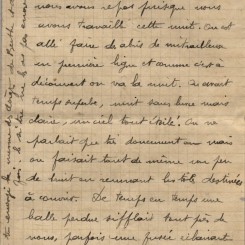 nous avons repos puisque nous
avons travaillé cette nuit. On est
allé faire des abris de mitrailleuses
en première ligne et comme c'est à
découvert on va la nuit. Il avait
temps superbe, nuit sans lune mais
claire, un ciel tout étoilé. On ne
parlait que très doucement mais
on faisait tout de même un peu
de bruit en remuant les tôles destinées
à couvrir. De temps en temps une
balle perdue sifflait tout près de
nous, parfois une fusée éclairant